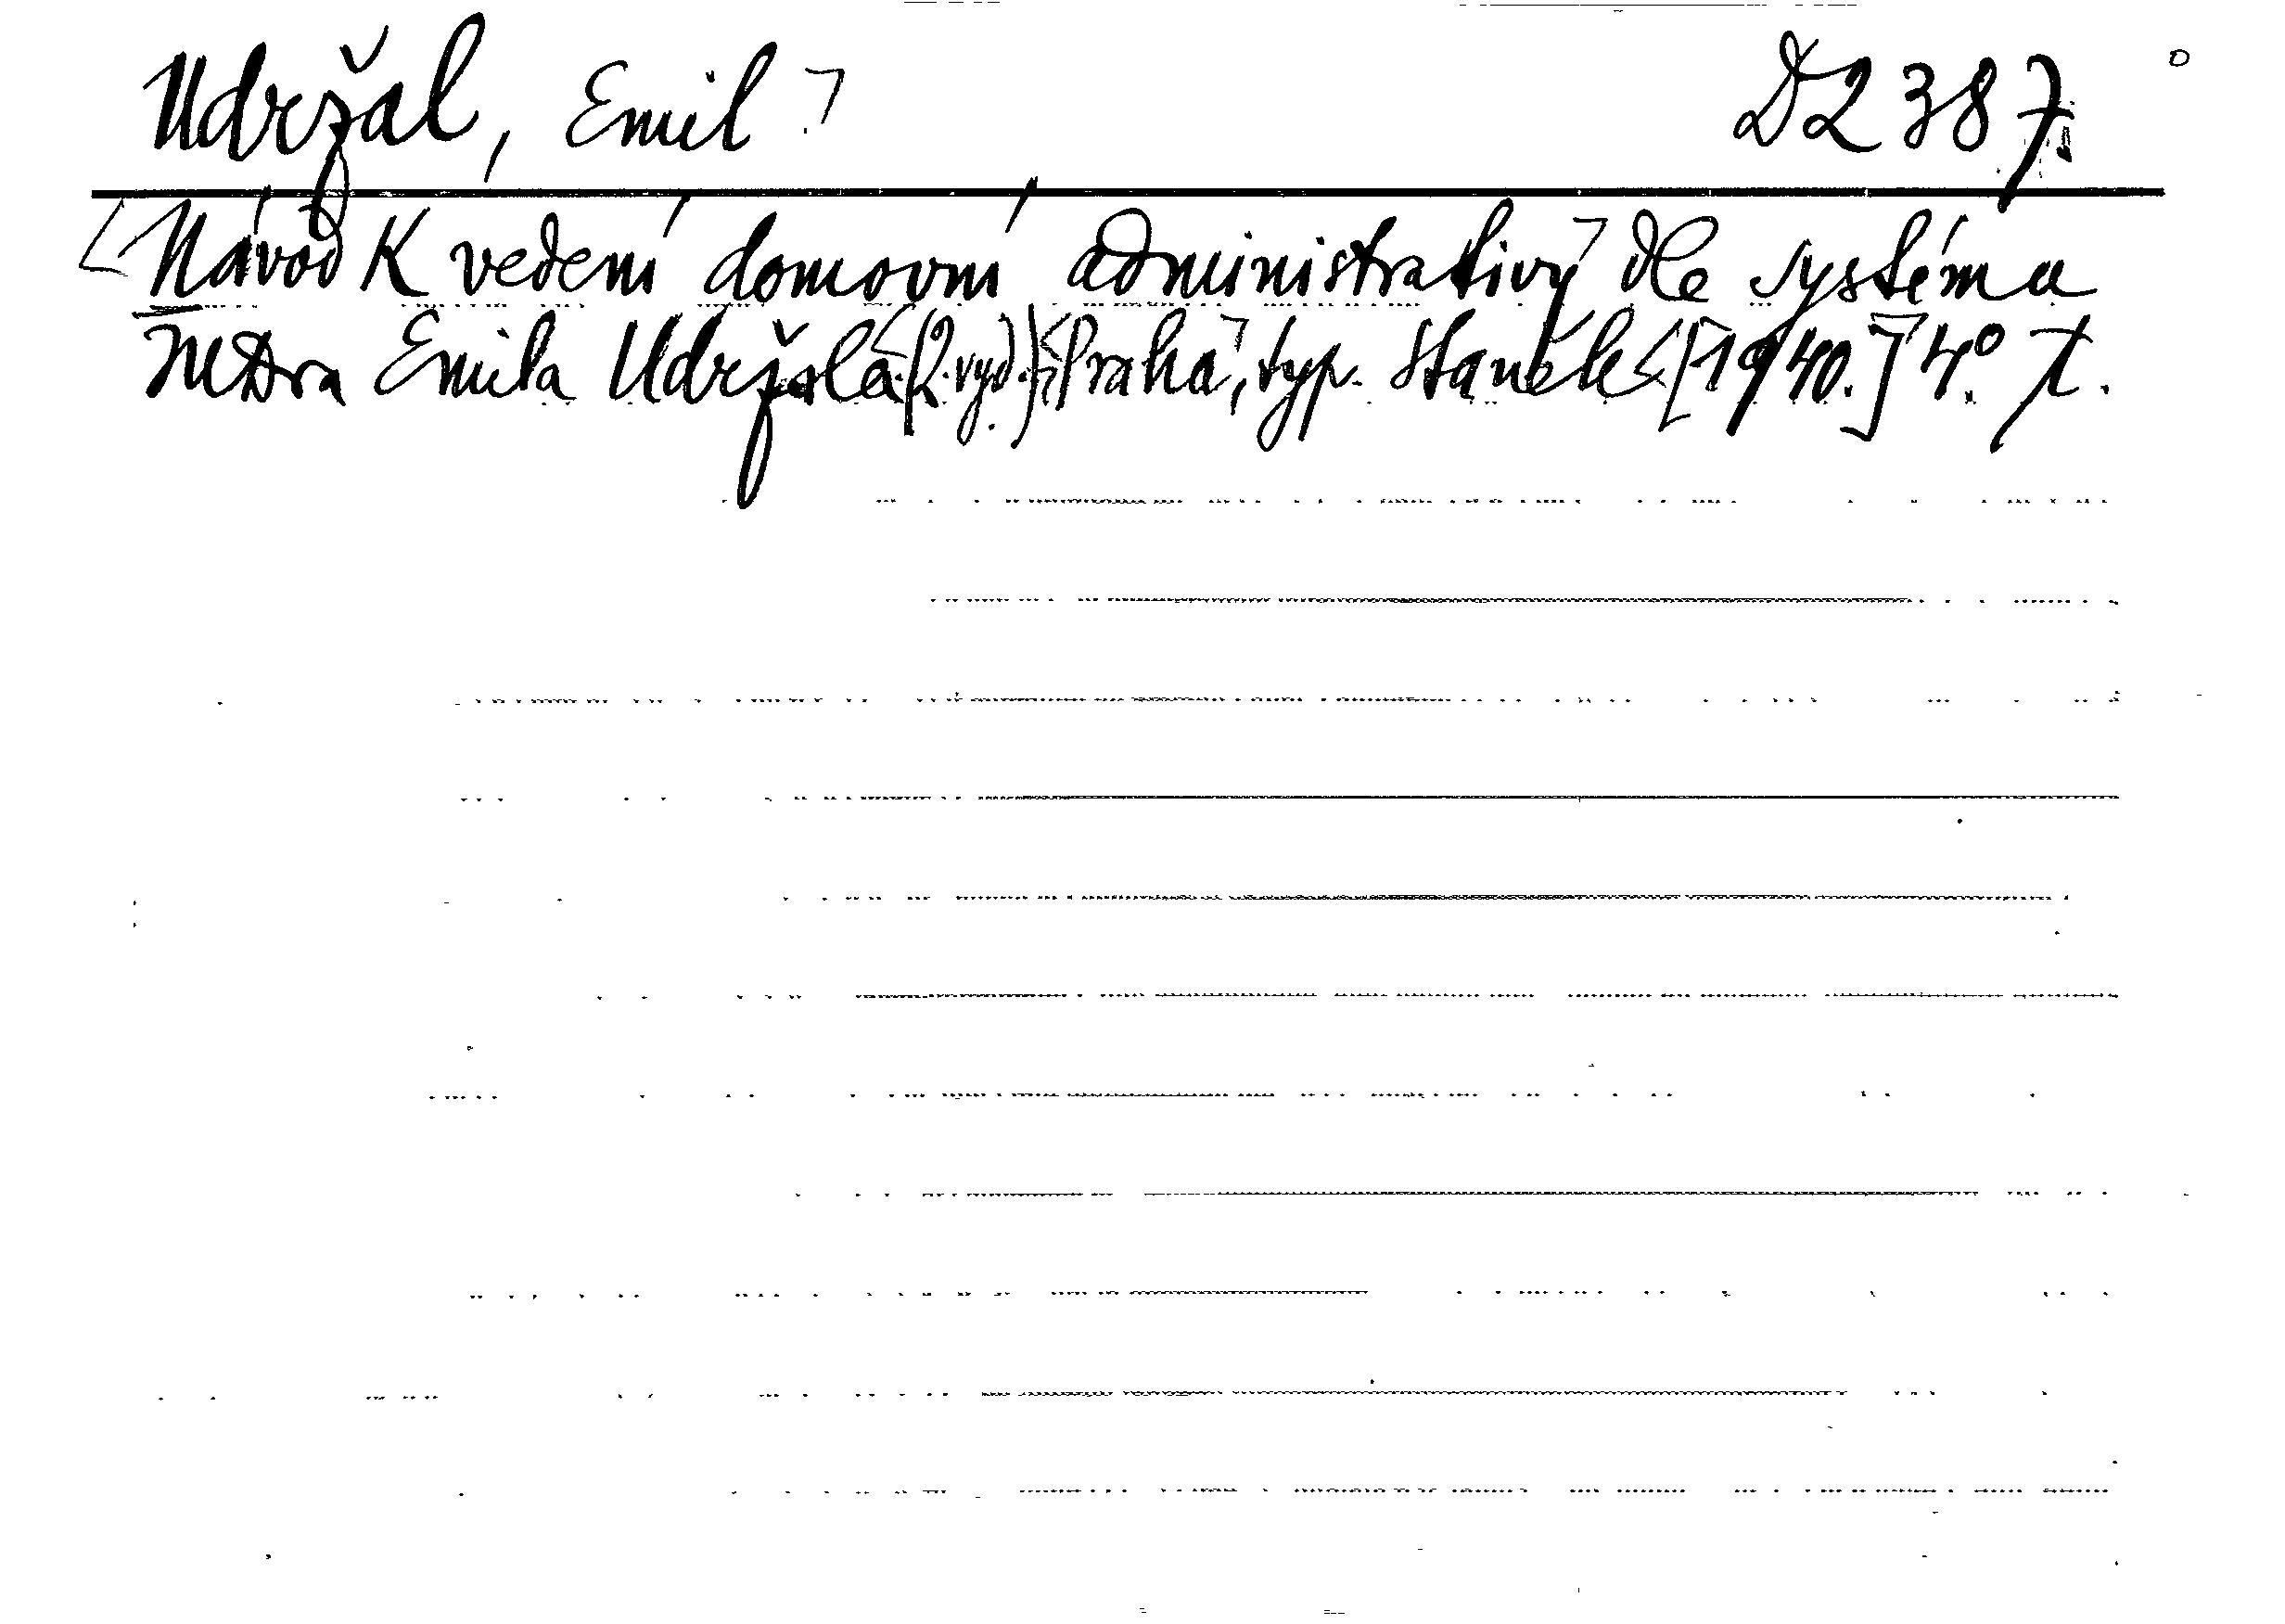 Udržal, Emil D2 387
Návod k vedení domovní administrativy dle systému
MDra Emila Udržala. (2. vyd.) Praha, typ. Staněk [1940.] 4.° T.